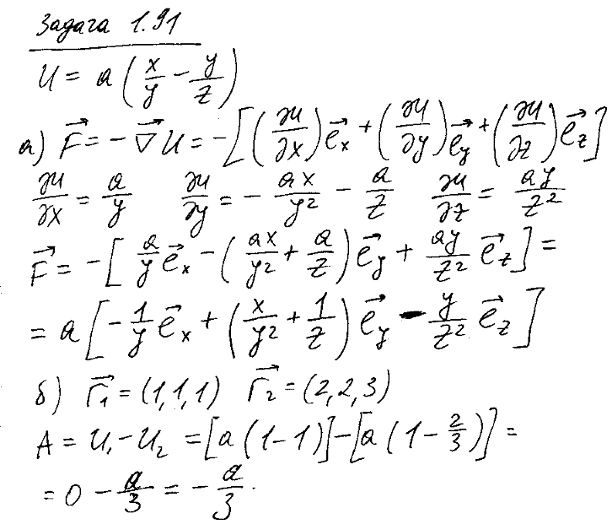 Задача 1.91
U = a(x/y − y/z)
а) F⃗ = −∇⃗U = −[(∂U/∂x)e⃗x + (∂U/∂y)e⃗y + (∂U/∂z)e⃗z]
∂U/∂x = a/y   ∂U/∂y = −ax/y² − a/z   ∂U/∂z = ay/z²
F⃗ = −[a/y e⃗x − (ax/y² + a/z)e⃗y + ay/z² e⃗z] =
= a[−1/y e⃗x + (x/y² + 1/z)e⃗y − y/z² e⃗z]
б) r⃗₁ = (1,1,1)   r⃗₂ = (2,2,3)
A = U₁ − U₂ = [a(1−1)] − [a(1 − 2/3)] =
= 0 − a/3 = −a/3.